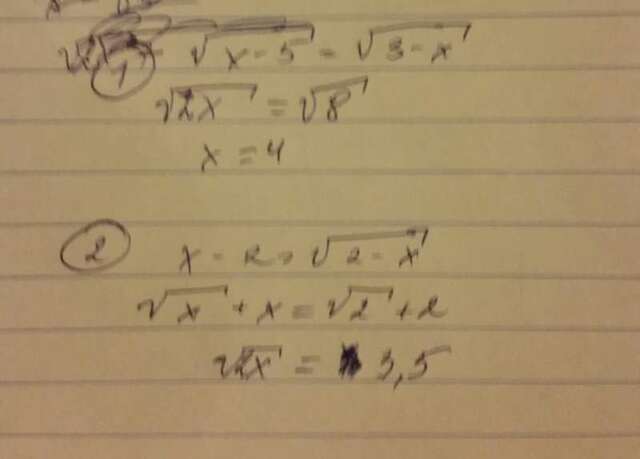 ① √x-5 = √3-x
√2x = √8
x = 4
② x - 2 = √2-x
√x + x = √2 + 2
√2x = 3,5